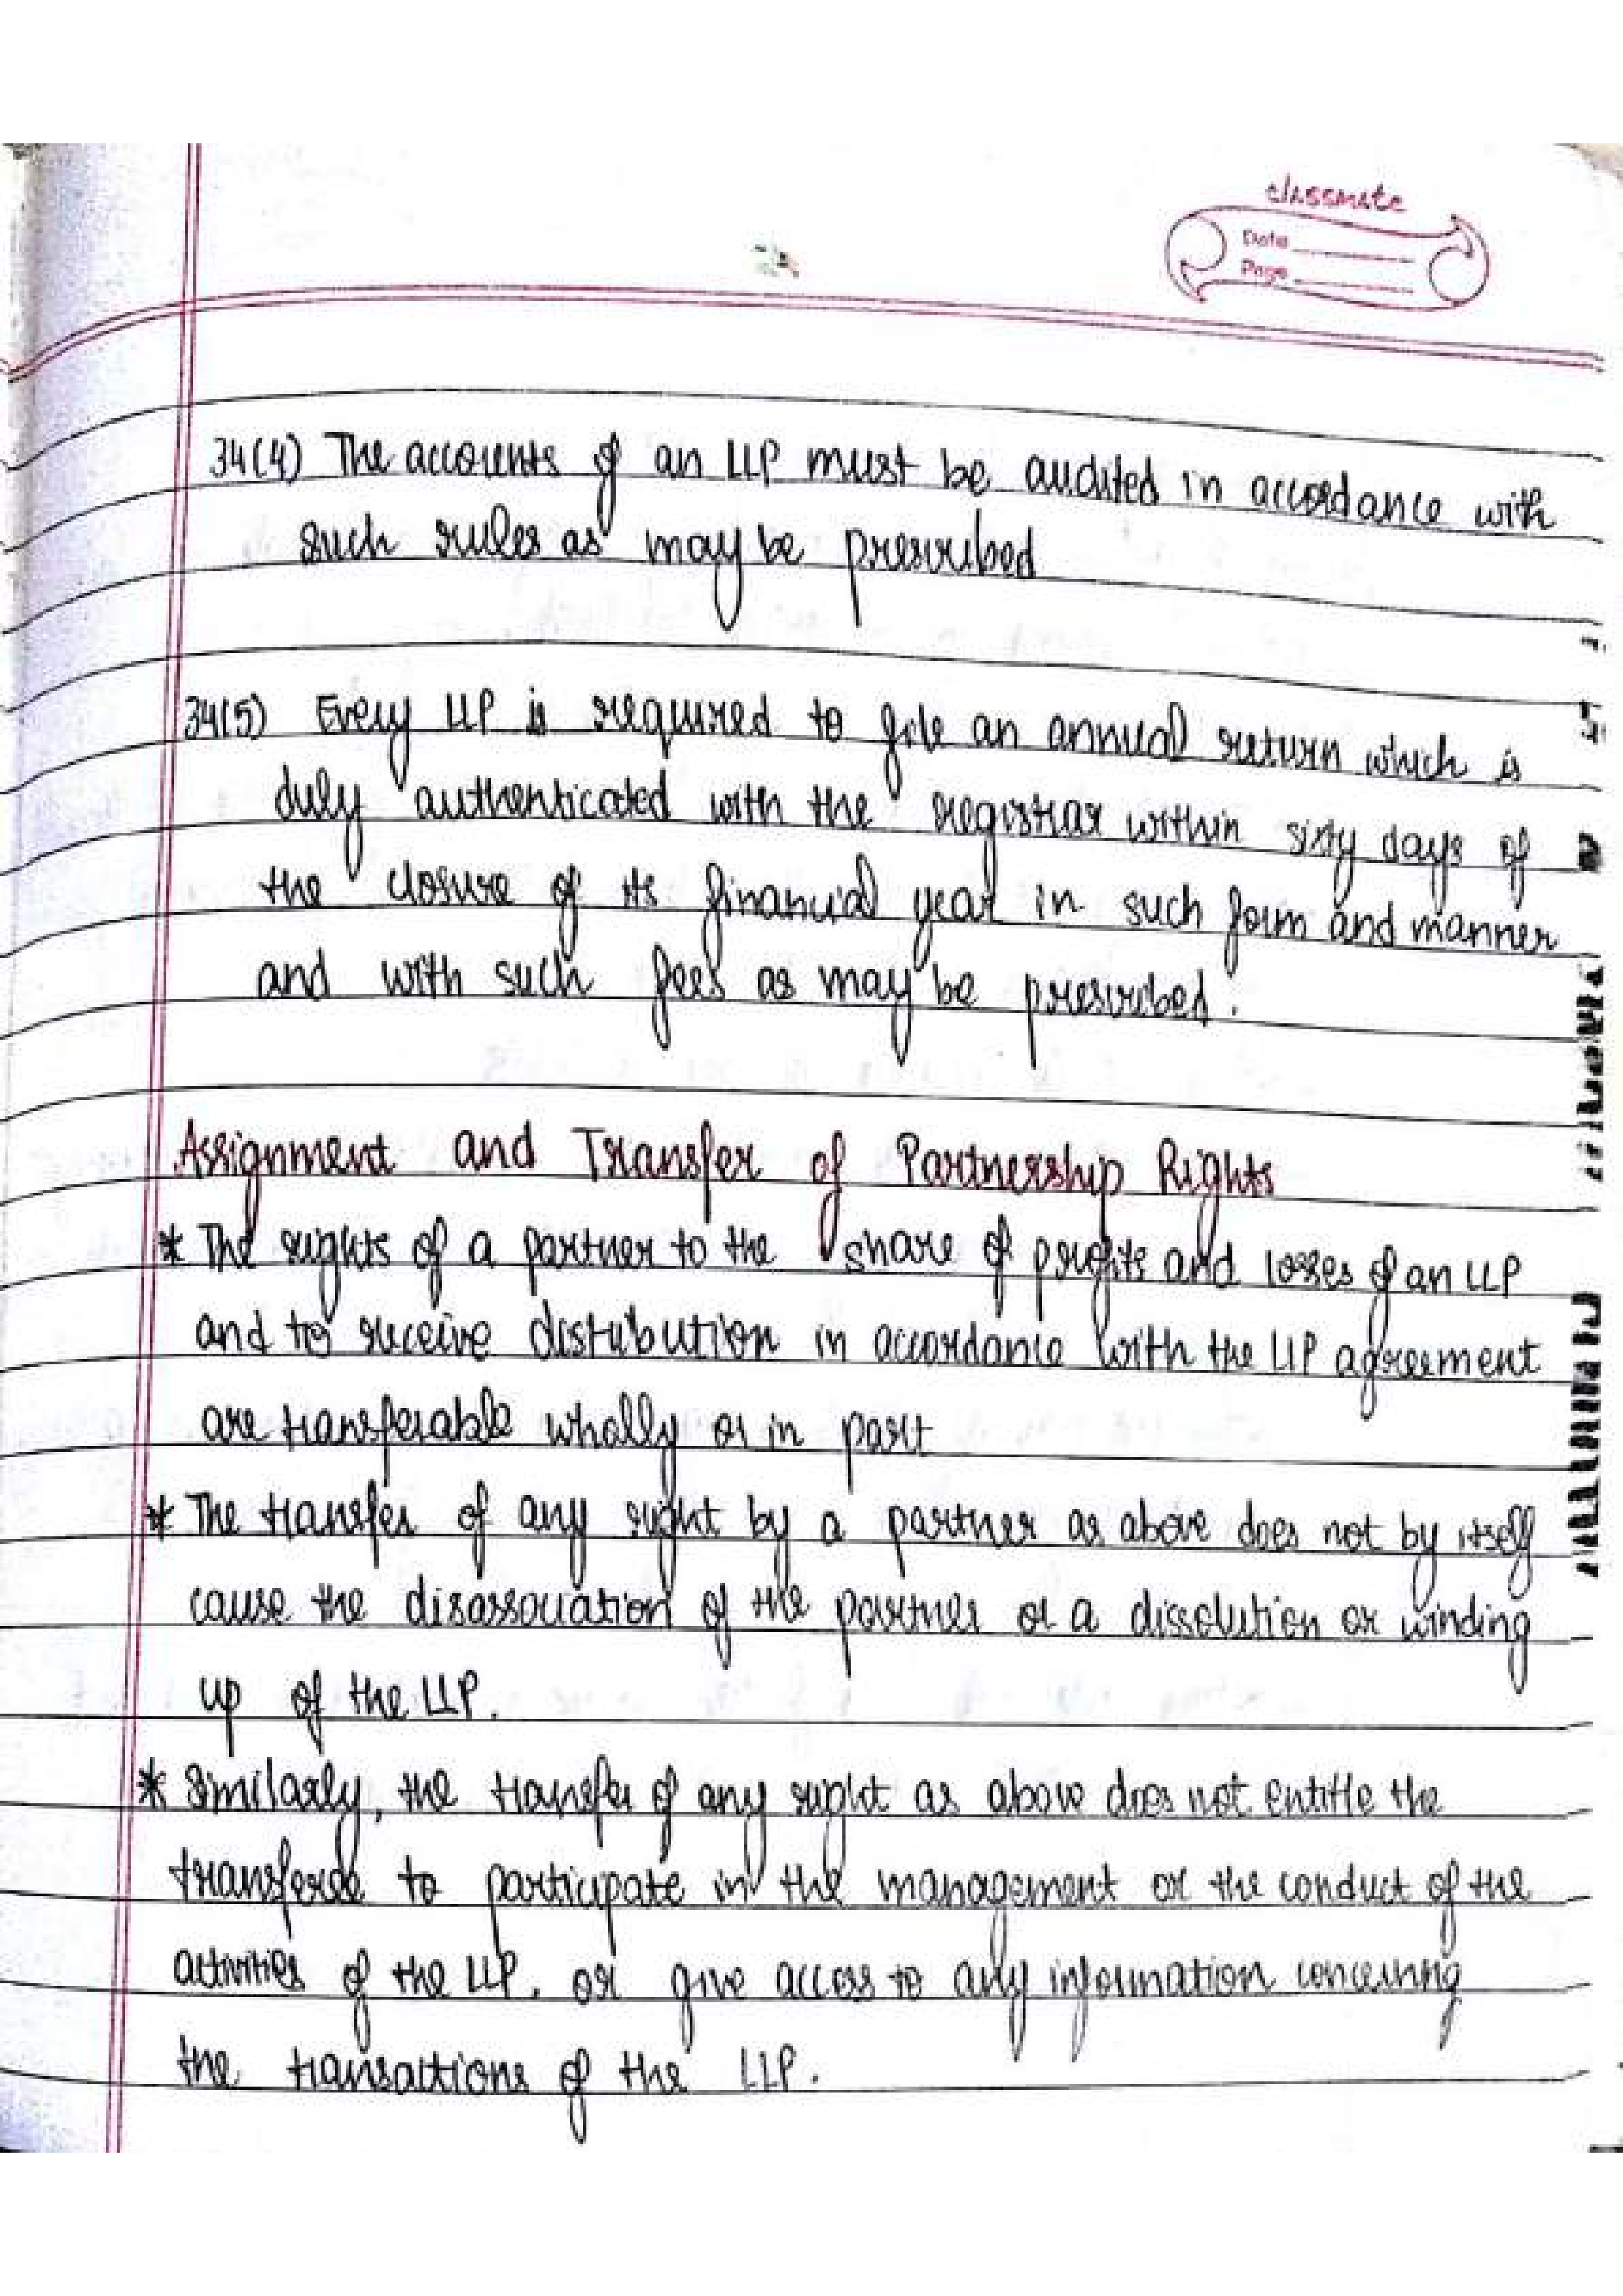 classmate
Date
Page
34(4) The accounts of an LLP must be audited in accordance with
such rules as may be prescribed
34(5) Every LLP is required to file an annual return which is
duly authenticated with the registrar within sixty days of
the closure of its financial year in such form and manner
and with such fees as may be prescribed.
Assignment and Transfer of Partnership Rights
* The rights of a partner to the share of profits and losses of an LLP
and to receive distribution in accordance with the LLP agreement
are transferable wholly or in part
* The transfer of any right by a partner as above does not by itself
cause the disassociation of the partner or a dissolution or winding
up of the LLP.
* Similarly, the transfer of any right as above does not entitle the
transferee to participate in the management or the conduct of the
activities of the LLP, or give access to any information concerning
the transactions of the LLP.